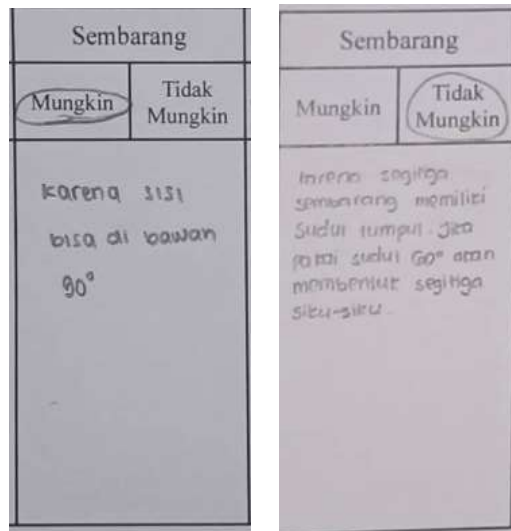 Sembarang
Mungkin
Tidak
Mungkin
karena sisi
bisa di bawah
90°
Sembarang
Mungkin
Tidak
Mungkin
karena segitiga
sembarang memiliki
sudut tumpul. Jika
pakai sudut 60° akan
membentuk segitiga
siku-siku.